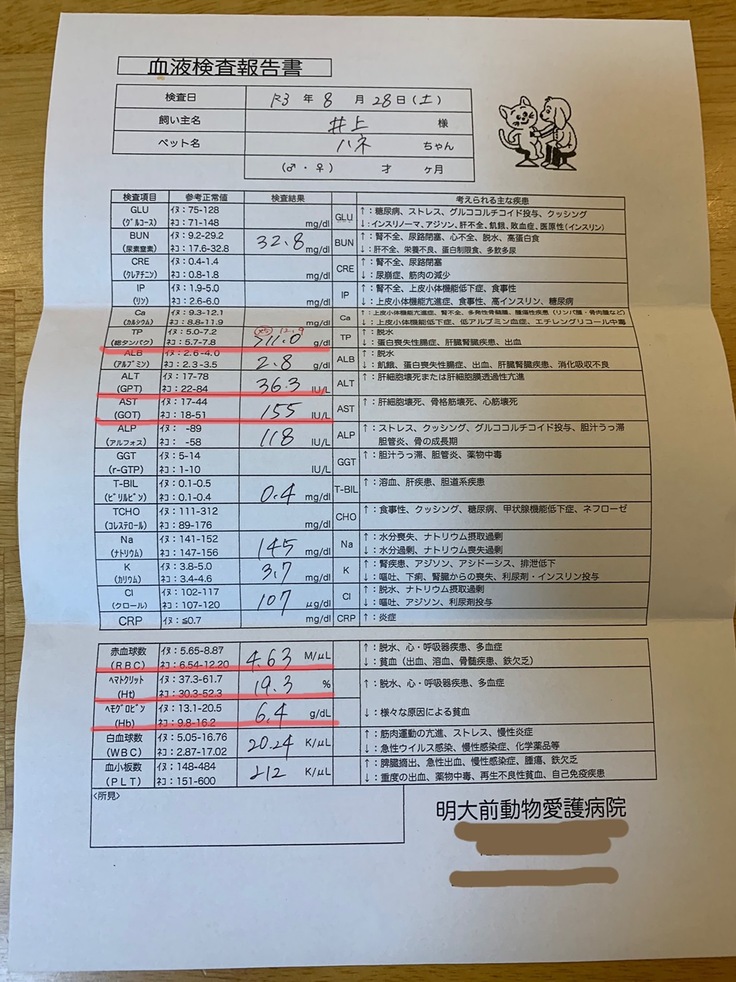 血液検査報告書
検査日 R3 年 8 月 28 日 (土)
飼い主名 井上 様
ペット名 ハネ ちゃん
(♂・♀) 才 ヶ月
検査項目 参考正常値 検査結果 考えられる主な疾患
GLU (グルコース) イヌ:75-128 ネコ:71-148 mg/dl GLU ↑:糖尿病、ストレス、グルココルチコイド投与、クッシング
↓:インスリノーマ、アジソン、肝不全、飢餓、敗血症、医原性(インスリン)
BUN (尿素窒素) イヌ:9.2-29.2 ネコ:17.6-32.8 32.8 mg/dl BUN ↑:腎不全、尿路閉塞、心不全、脱水、高蛋白食
↓:肝不全、栄養不良、蛋白制限食、多飲多尿
CRE (クレアチニン) イヌ:0.4-1.4 ネコ:0.8-1.8 mg/dl CRE ↑:腎不全、尿路閉塞
↓:尿崩症、筋肉の減少
IP (リン) イヌ:1.9-5.0 ネコ:2.6-6.0 mg/dl IP ↑:腎不全、上皮小体機能低下症、食事性
↓:上皮小体機能亢進症、食事性、高インスリン、糖尿病
Ca (カルシウム) イヌ:9.3-12.1 ネコ:8.8-11.9 mg/dl Ca ↑:上皮小体機能亢進症、腎不全、多発性骨髄腫、腫瘍性疾患(リンパ腫・骨肉腫など)
↓:上皮小体機能低下症、低アルブミン血症、エチレングリコール中毒
TP (総タンパク) イヌ:5.0-7.2 ネコ:5.7-7.8 11.0 g/dl TP ↑:脱水
↓:蛋白喪失性腸症、肝臓腎臓疾患、出血
ALB (アルブミン) イヌ:2.6-4.0 ネコ:2.3-3.5 2.8 g/dl ALB ↑:脱水
↓:飢餓、蛋白喪失性腸症、出血、肝臓腎臓疾患、消化吸収不良
ALT (GPT) イヌ:17-78 ネコ:22-84 363 IU/L ALT ↑:肝細胞壊死または肝細胞膜透過性亢進
AST (GOT) イヌ:17-44 ネコ:18-51 155 IU/L AST ↑:肝細胞壊死、骨格筋壊死、心筋壊死
ALP (アルフォス) イヌ: -89 ネコ: -58 118 IU/L ALP ↑:ストレス、クッシング、グルココルチコイド投与、胆汁うっ滞
胆管炎、骨の成長期
GGT (r-GTP) イヌ:5-14 ネコ:1-10 IU/L GGT ↑:胆汁うっ滞、胆管炎、薬物中毒
T-BIL (ビリルビン) イヌ:0.1-0.5 ネコ:0.1-0.4 0.4 mg/dl T-BIL ↑:溶血、肝疾患、胆道系疾患
TCHO (コレステロール) イヌ:111-312 ネコ:89-176 mg/dl CHO ↑:食事性、クッシング、糖尿病、甲状腺機能低下症、ネフローゼ
Na (ナトリウム) イヌ:141-152 ネコ:147-156 145 mg/dl Na ↑:水分喪失、ナトリウム摂取過剰
↓:水分過剰、ナトリウム喪失過剰
K (カリウム) イヌ:3.8-5.0 ネコ:3.4-4.6 3.7 mg/dl K ↑:腎疾患、アジソン、アシドーシス、排泄低下
↓:嘔吐、下痢、腎臓からの喪失、利尿剤・インスリン投与
Cl (クロール) イヌ:102-117 ネコ:107-120 107 μg/dl Cl ↑:脱水、ナトリウム摂取過剰
↓:嘔吐、アジソン、利尿剤投与
CRP イヌ:≦0.7 mg/dl CRP ↑:炎症
赤血球数 (RBC) イヌ:5.65-8.87 ネコ:6.54-12.20 4.63 M/μL ↑:脱水、心・呼吸器疾患、多血症
↓:貧血(出血、溶血、骨髄疾患、鉄欠乏)
ヘマトクリット (Ht) イヌ:37.3-61.7 ネコ:30.3-52.3 19.3 % ↑:脱水、心・呼吸器疾患、多血症
ヘモグロビン (Hb) イヌ:13.1-20.5 ネコ:9.8-16.2 6.4 g/dL ↓:様々な原因による貧血
白血球数 (WBC) イヌ:5.05-16.76 ネコ:2.87-17.02 20.24 K/μL ↑:筋肉運動の亢進、ストレス、慢性炎症
↓:急性ウイルス感染、慢性感染症、化学薬品等
血小板数 (PLT) イヌ:148-484 ネコ:151-600 212 K/μL ↑:脾臓摘出、急性出血、慢性感染症、腫瘍、鉄欠乏
↓:重度の出血、薬物中毒、再生不良性貧血、自己免疫疾患
<所見>
明大前動物愛護病院